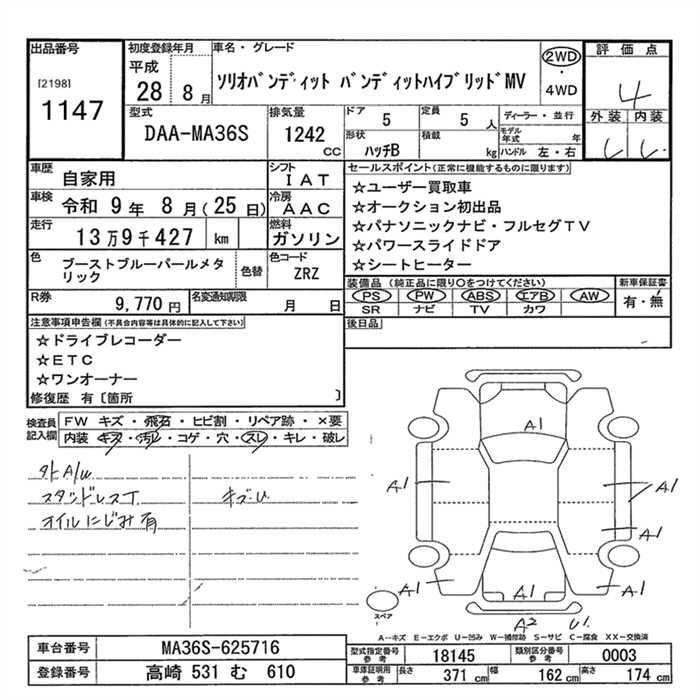 出品番号
[2198]
1147
初度登録年月
平成
28 8 月
車名・グレード
ソリオバンディット バンディットハイブリッドMV
2WD
・
4WD
評価点
4
外装 内装
型式
DAA-MA36S
排気量
1242
CC
ドア
5
定員
5 人
形状
ハッチB
積載
kg
ディーラー・並行
モデル年式 年
ハンドル 左・右
車歴
自家用
シフト
IAT
車検
令和 9年 8月(25日)
冷房
AAC
走行
13万9千427 km
燃料
ガソリン
色
ブーストブルーパールメタリック
色替
色コード
ZRZ
R券
9,770 円
名変通知期限
月 日
セールスポイント(正常に機能するものに限ります)
☆ユーザー買取車
☆オークション初出品
☆パナソニックナビ・フルセグTV
☆パワースライドドア
☆シートヒーター
装備品(純正品に限り○をつけてください)
PS PW ABS エアB AW
SR ナビ TV カワ
新車保証書
有・無
後日品
注意事項申告欄(不具合内容等は具体的に記入して下さい)
☆ドライブレコーダー
☆ETC
☆ワンオーナー
修復歴 有〔箇所 〕
検査員記入欄
FW キズ・飛石・ヒビ割・リペア跡・×要
内装・キズ・汚レ・コゲ・穴・スレ・キレ・破レ
外A/W
スタッドレスT
オイルにじみ有
キズ・U
A1
A1
A1
A1
A1
A1
A1
A2 U1
スペア
A-キズ E-エクボ U-凹み W-補修跡 S-サビ C-腐食 XX-交換済
車台番号
MA36S-625716
登録番号
高崎 531 む 610
型式指定番号
参考
18145
類別区分番号
参考
0003
車庫証明用
参考
長さ
371 cm
幅
162 cm
高さ
174 cm